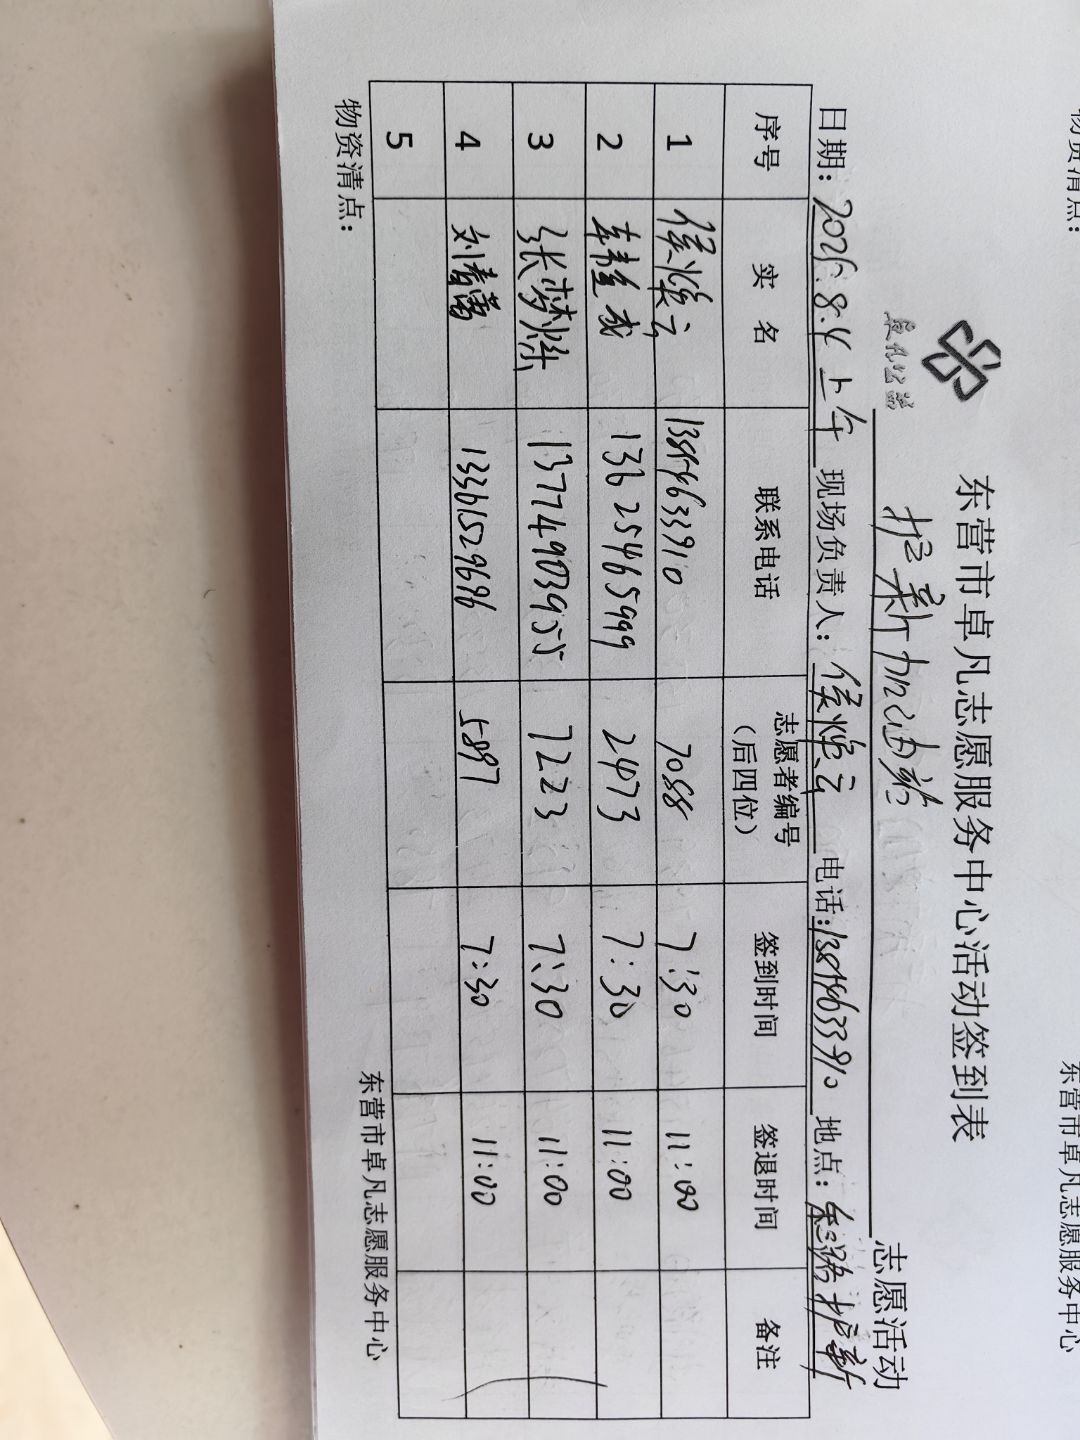 东营市卓凡志愿服务中心活动签到表
卓凡公益
护新加油站 志愿活动
日期：2026.8.4 上午 现场负责人：侯 云 电话：13854633910 地点： 路护新
序号 实 名 联系电话 志愿者编号（后四位） 签到时间 签退时间 备注
1 侯 云 13854633910 7058 7:30 11:00
2 韩 成 13625465999 2473 7:30 11:00
3 张梦烁 13774903955 7223 7:30 11:00
4 刘春蕾 13361529696 5897 7:30 11:00
5
物资清点： 东营市卓凡志愿服务中心
物资清点： 东营市卓凡志愿服务中心